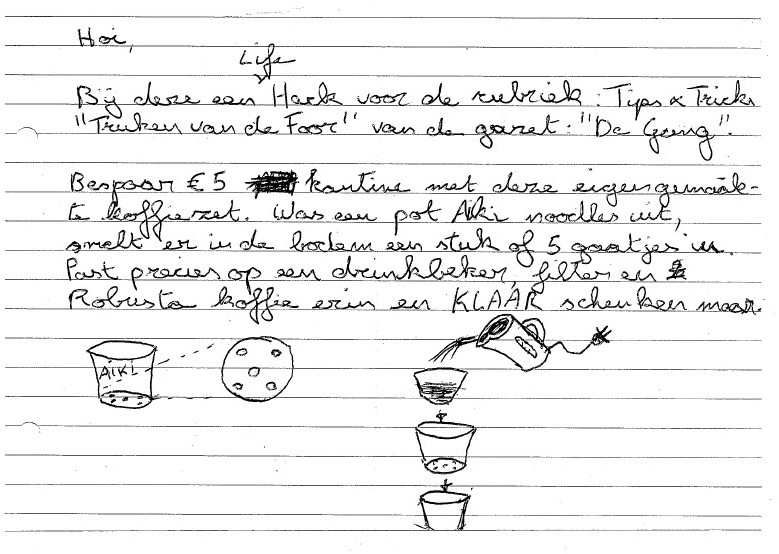 Hoi,
Life
Bij deze een Hack voor de rubriek: Tips & Tricks
"Truken van de Foor" van de gazet: "De Gevng".
Bespaar € 5 kantine met deze eigengemaak-
te koffiezet. Was een pot Aiki noodles uit,
smelt er in de bodem een stuk of 5 gaatjes in.
Past precies op een drinkbeker, filter en
Robusta koffie erin en KLAAR schenken maar.
AIKI